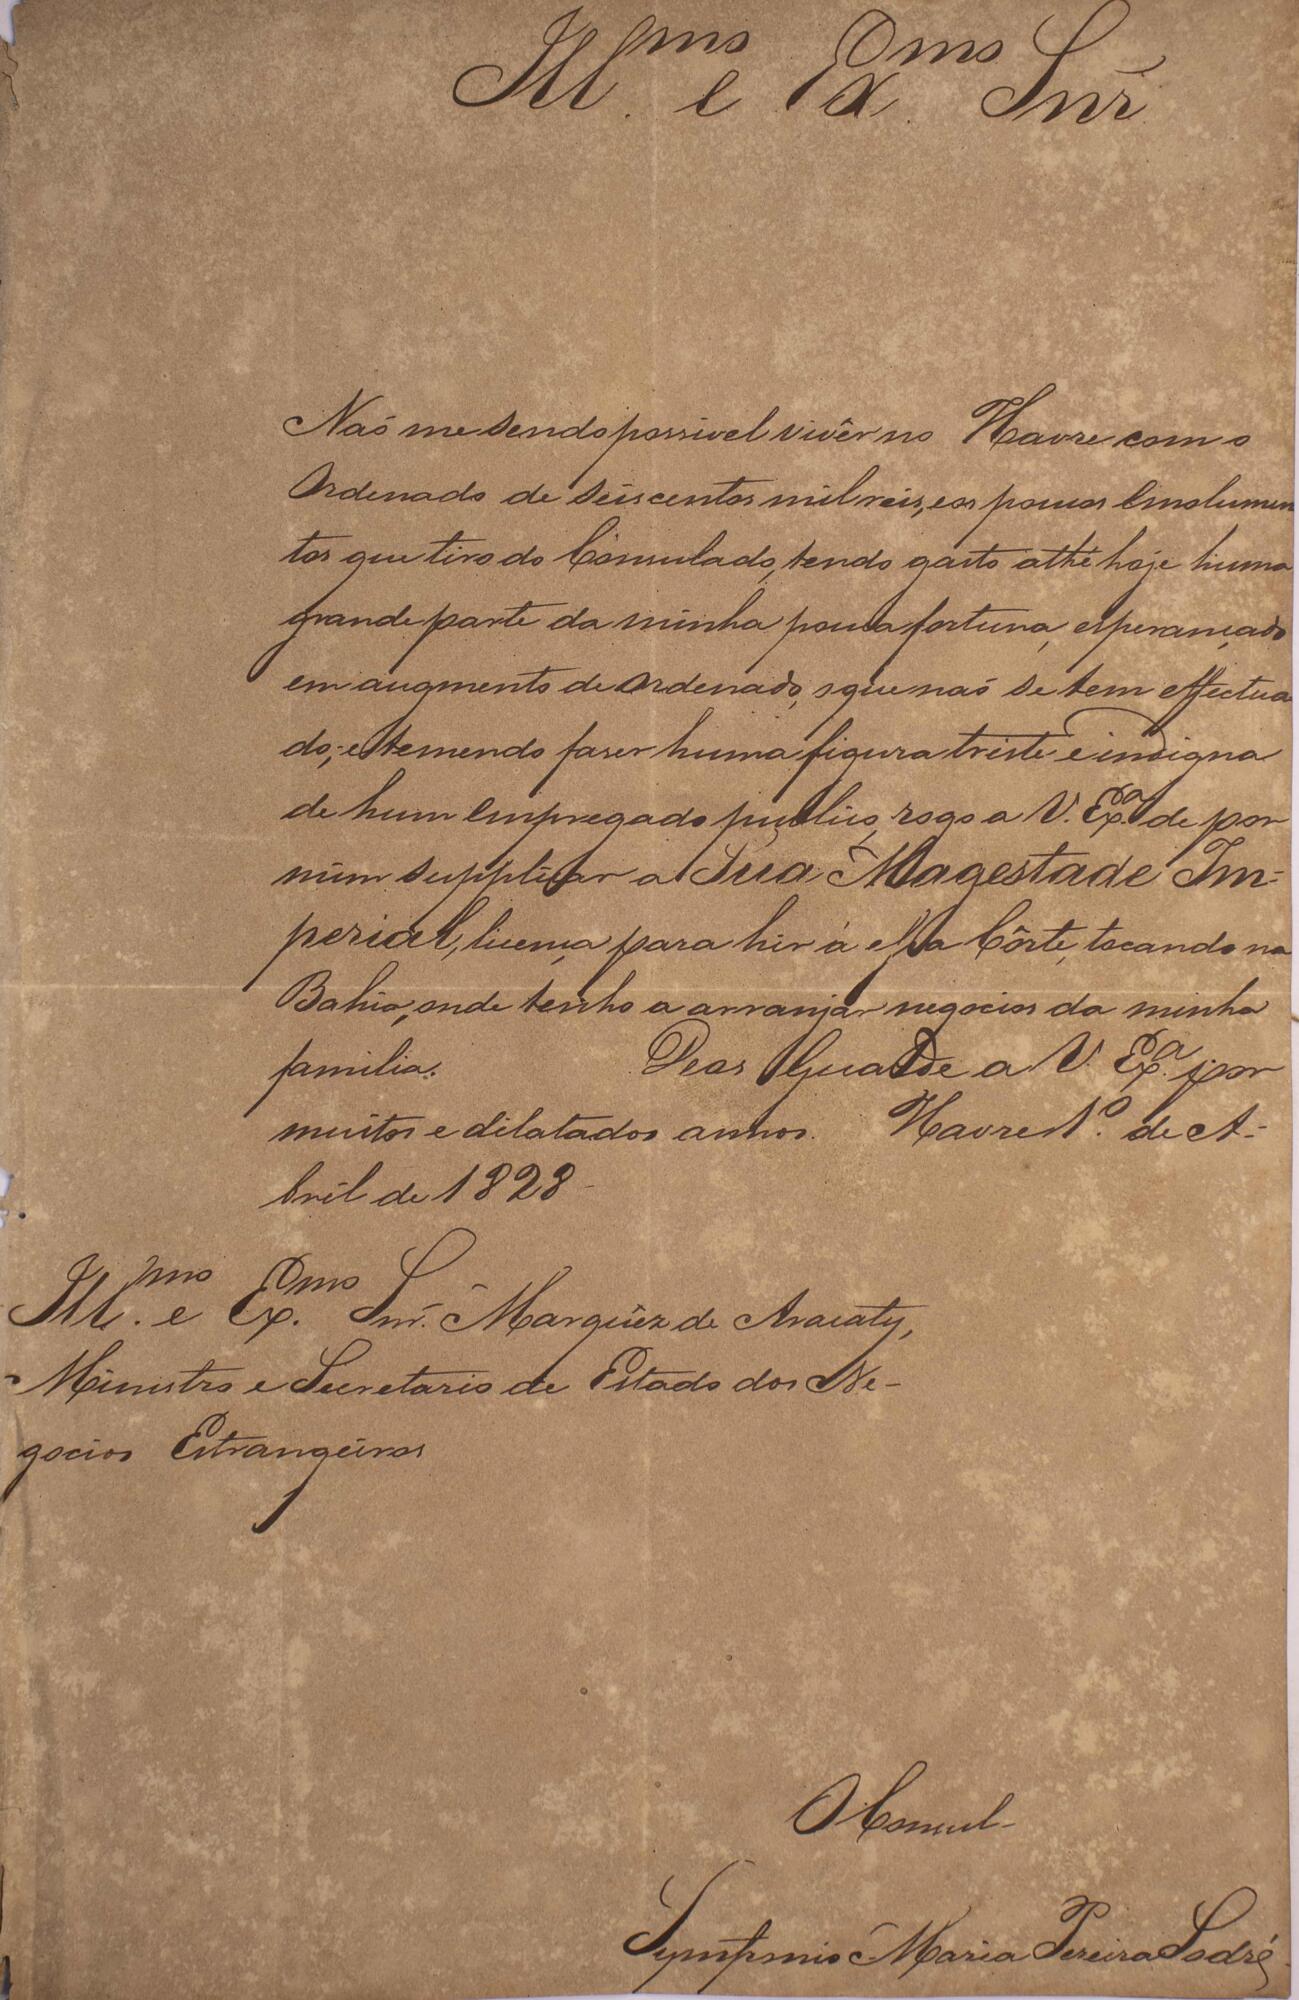 Ill.mo e Ex.mo Snr̃
Naõ me sendo possivel vivêr no Havre com o
Ordenado de seiscentos mil reis, e os poucos Emolumen
tos que tiro do Consulado, tendo gasto athé hoje huma
grande parte da minha pouca fortuna, esperançado
em augmento de Ordenado, o que naõ se tem effectua
do; e temendo faser huma figura triste e indigna
de hum Empregado publico, rogo a V. Ex.a de por
mim supplicar a Sua Magestade Im-
perial, licença para hir á essa Côrte, tocando na
Bahia, onde tenho a arranjar negocios da minha
familia. Deos Guarde a V. Ex.a por
muitos e dilatados annos. Havre 1.o de A-
bril de 1828
Ill.mo e Ex.mo Snr. Marquêz de Aracaty,
Ministro e Secretario de Estado dos Ne-
gocios Estrangeiros
O Consul-
Symfronio Maria Pereira Sodré